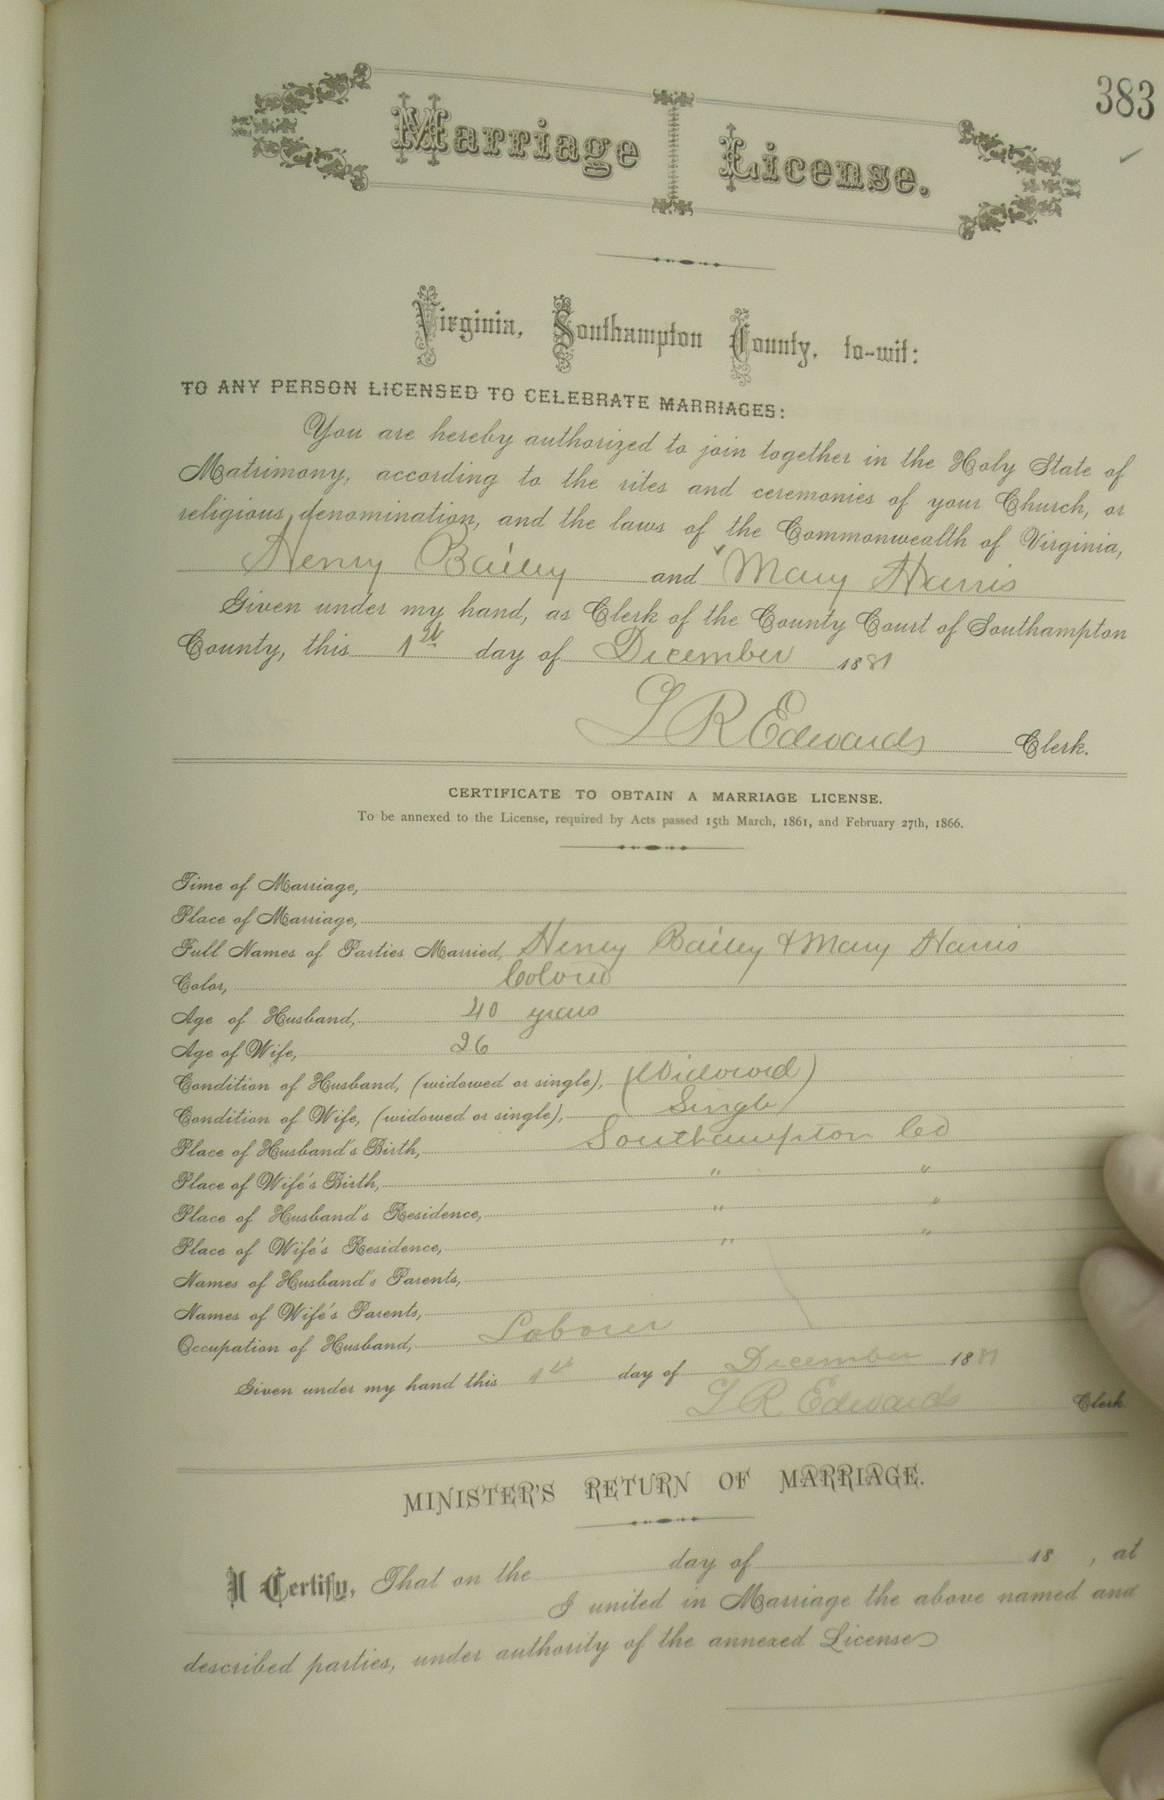 383
Marriage License.
Virginia, Southampton County, to-wit:
TO ANY PERSON LICENSED TO CELEBRATE MARRIAGES:
You are hereby authorized to join together in the Holy State of
Matrimony, according to the rites and ceremonies of your Church, or
religious denomination, and the laws of the Commonwealth of Virginia,
Henry Bailey and Mary Harris
Given under my hand, as Clerk of the County Court of Southampton
County, this 1st day of December 1881
L R Edwards Clerk.
CERTIFICATE TO OBTAIN A MARRIAGE LICENSE.
To be annexed to the License, required by Acts passed 15th March, 1861, and February 27th, 1866.
Time of Marriage,
Place of Marriage,
Full Names of Parties Married, Henry Bailey & Mary Harris
Color, Colored
Age of Husband, 40 years
Age of Wife, 26
Condition of Husband, (widowed or single), (Widowed)
Condition of Wife, (widowed or single), (Single)
Place of Husband's Birth, Southampton Co
Place of Wife's Birth, " "
Place of Husband's Residence, " "
Place of Wife's Residence, " "
Names of Husband's Parents,
Names of Wife's Parents,
Occupation of Husband, Laborer
Given under my hand this 1st day of December 1881
L R Edwards Clerk.
MINISTER'S RETURN OF MARRIAGE.
I Certify, That on the day of 18 , at
I united in Marriage the above named and
described parties, under authority of the annexed License